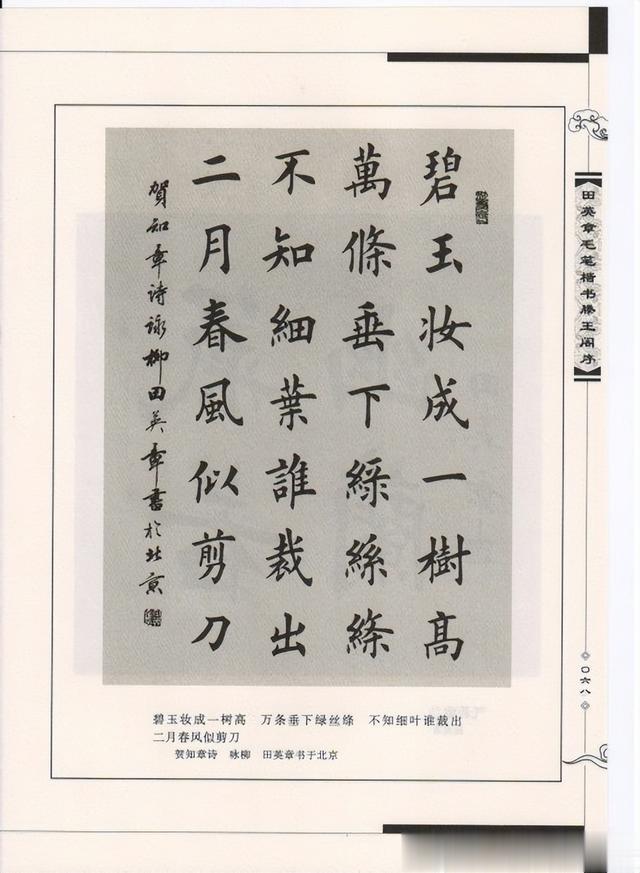 碧玉妝成一樹高
萬條垂下綠絲絛
不知細葉誰裁出
二月春風似剪刀
賀知章诗詠柳田英章書於北京
田英章毛笔楷书滕王阁序
〇六八
碧玉妆成一树高 万条垂下绿丝绦 不知细叶谁裁出
二月春风似剪刀
贺知章诗 咏柳 田英章书于北京